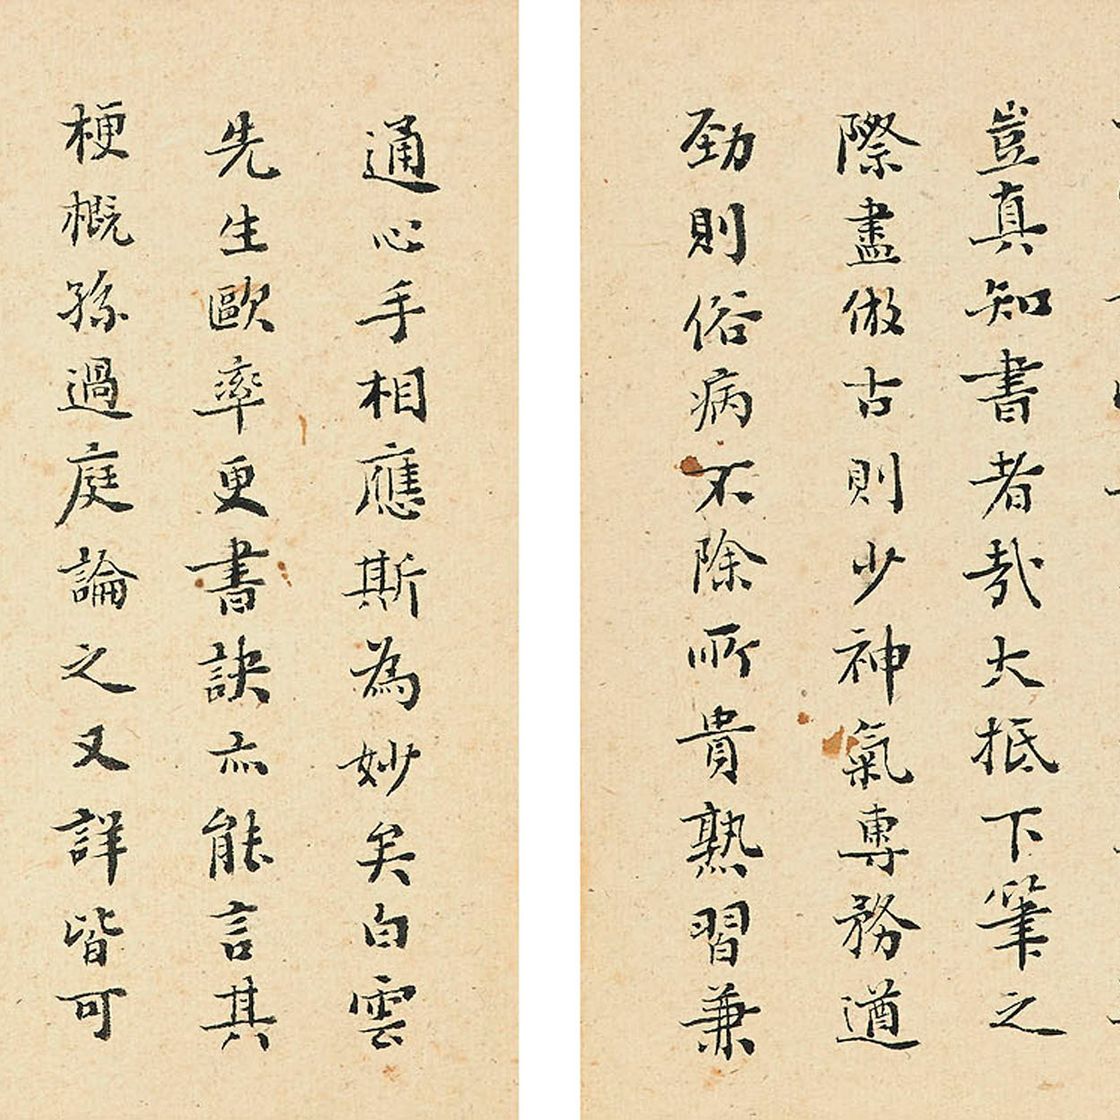 豈真知書者哉大抵下筆之
際盡倣古則少神氣專務遒
勁則俗病不除所貴熟習兼
通心手相應斯為妙矣白雲
先生歐率更書訣亦能言其
梗概孫過庭論之又詳皆可